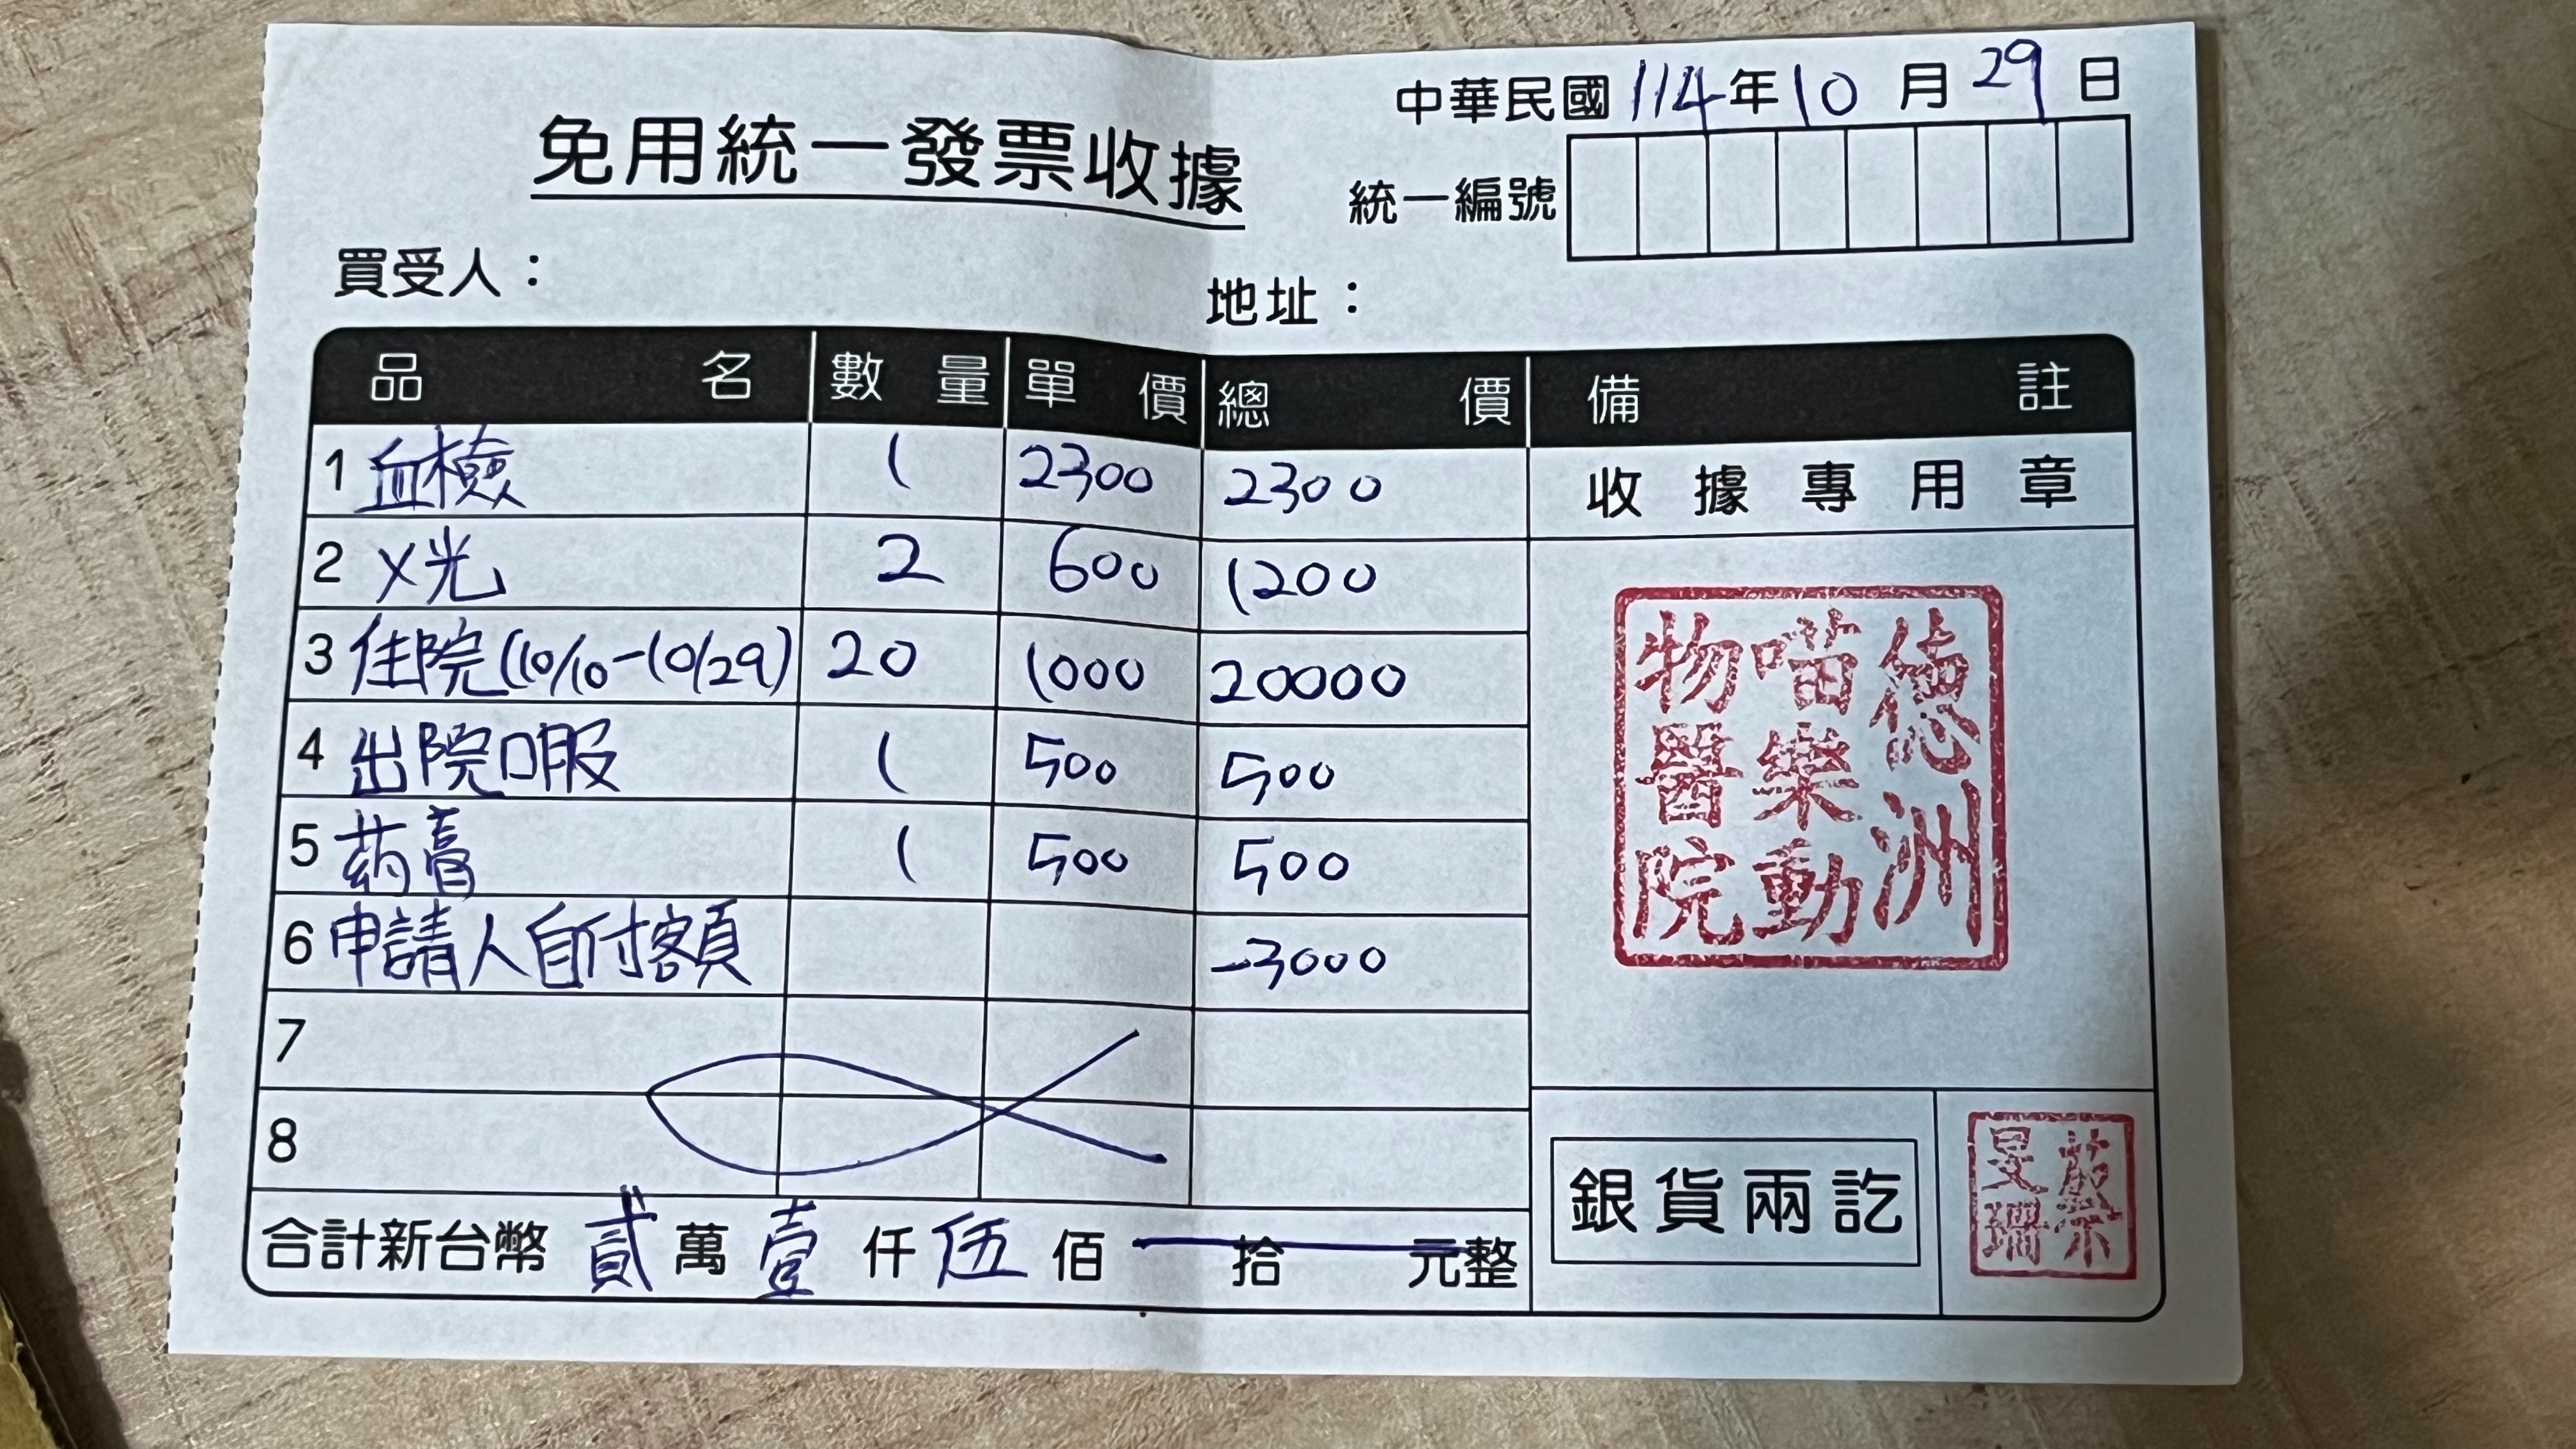 中華民國114年10月29日
免用統一發票收據
統一編號
買受人：
地址：
品名 數量 單價 總價 備註
1 血檢 1 2300 2300
收據專用章
2 X光 2 600 1200
3 住院(10/10-10/29) 20 1000 20000
4 出院口服 1 500 500
5 葯膏 1 500 500
6 申請人自付額 -3000
7
8
德洲
喵樂動
物醫院
合計新台幣 貳萬壹仟伍佰 拾 元整
銀貨兩訖
蔡
旻珊